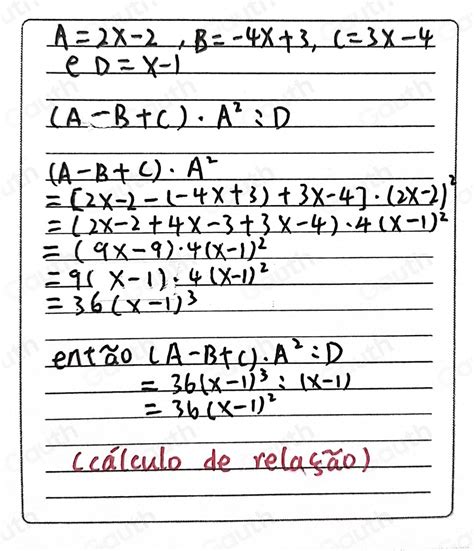 A=2x-2, B=-4x+3, C=3x-4
e D=x-1
(A-B+C)·A²:D
(A-B+C)·A²
=[2x-2-(-4x+3)+3x-4]·(2x-2)²
=(2x-2+4x-3+3x-4)·4(x-1)²
=(9x-9)·4(x-1)²
=9(x-1)·4(x-1)²
=36(x-1)³
então (A-B+C)·A²:D
=36(x-1)³:(x-1)
=36(x-1)²
(cálculo de relação)